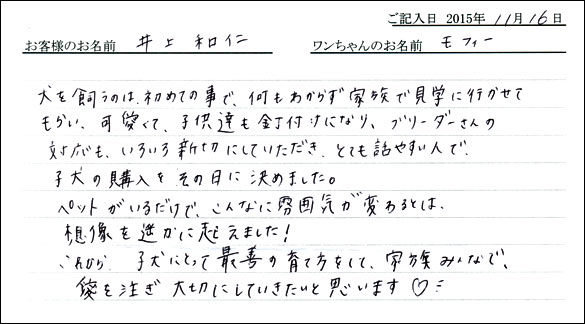 ご記入日 2015年 11月 16日
お客様のお名前 井上 和仁 ワンちゃんのお名前 モフィー
犬を飼うのは初めての事で、何もわからず家族で見学に行かせて
もらい、可愛くて、子供達も釘付けになり、ブリーダーさんの
対応も、いろいろ親切にしていただき、とても話やすい人で、
子犬の購入をその日に決めました。
ペットがいるだけで、こんなに雰囲気が変わるとは、
想像を遥かに超えました!
これから 子犬にとって最善の育て方をして、家族みんなで、
愛を注ぎ 大切にしていきたいと思います♡